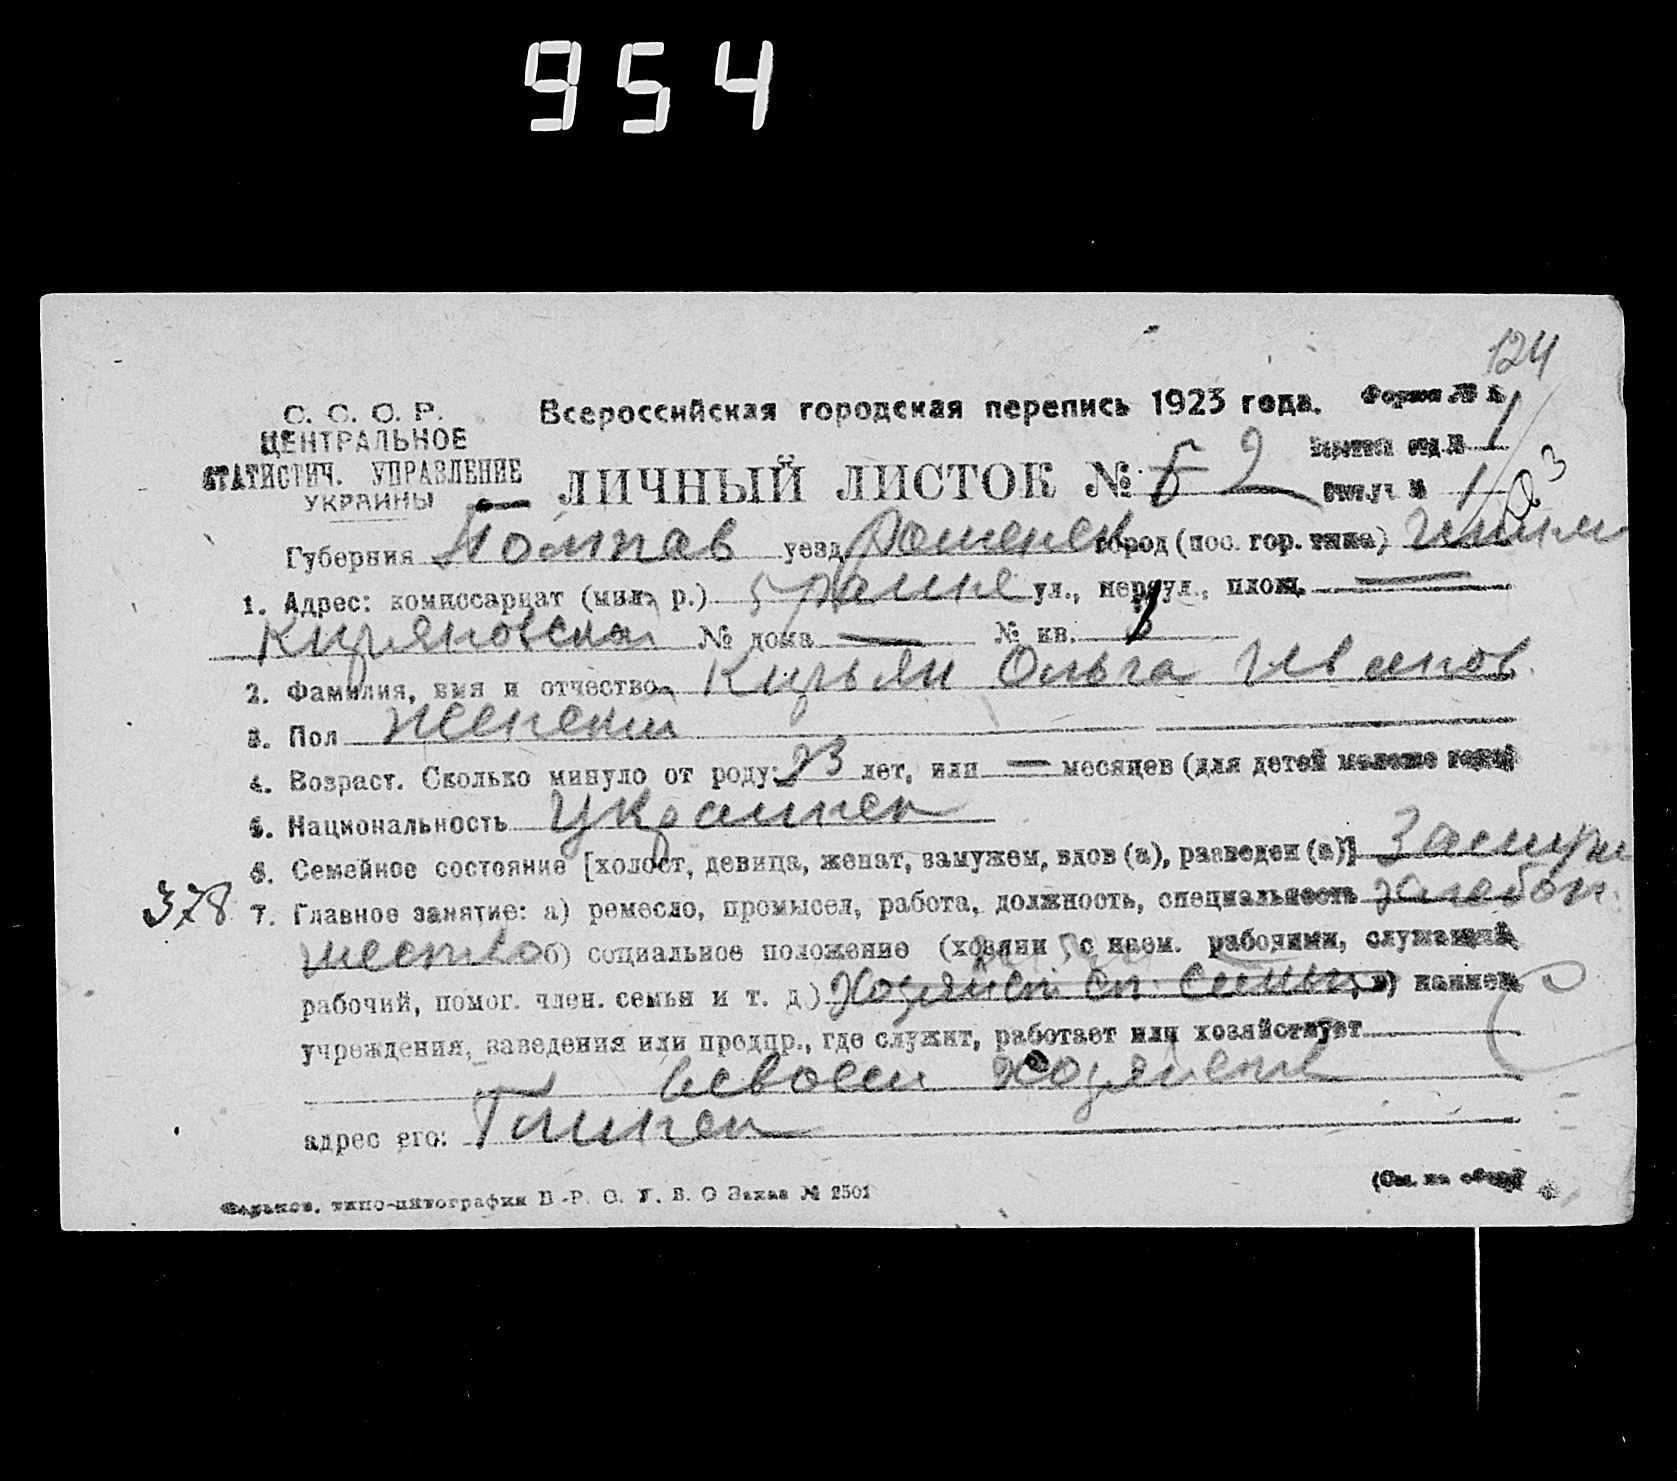 954
124
С. С. С. Р.
ЦЕНТРАЛЬНОЕ
СТАТИСТИЧ. УПРАВЛЕНИЕ
УКРАИНЫ
Всероссийская городская перепись 1923 года.
Форма № 1
ЛИЧНЫЙ ЛИСТОК № 2
Губерния Полтав уезд Роменск город (пос. гор. типа)
1. Адрес: комиссариат (мил. р.) ул., переул., площ. —
№ дома — № кв. 1
2. Фамилия, имя и отчество Кирьян Ольга Иванов.
3. Пол женский
4. Возраст. Сколько минуло от роду: 23 лет, или — месяцев (для детей моложе года)
5. Национальность Украинск
6. Семейное состояние [холост, девица, женат, замужем, вдов (а), разведен (а)] Замуж
378 7. Главное занятие: а) ремесло, промысел, работа, должность, специальность хлебоп.
б) социальное положение (хозяин с наем. рабочими, служащий,
рабочий, помог. член. семьи и т. д.) в) наимен.
учреждения, заведения или предпр., где служит, работает или хозяйствует
в своем
адрес его:
Харьков, типо-литография В. Р. С. У. В. О Заказ № 2501
(См. на обор.)